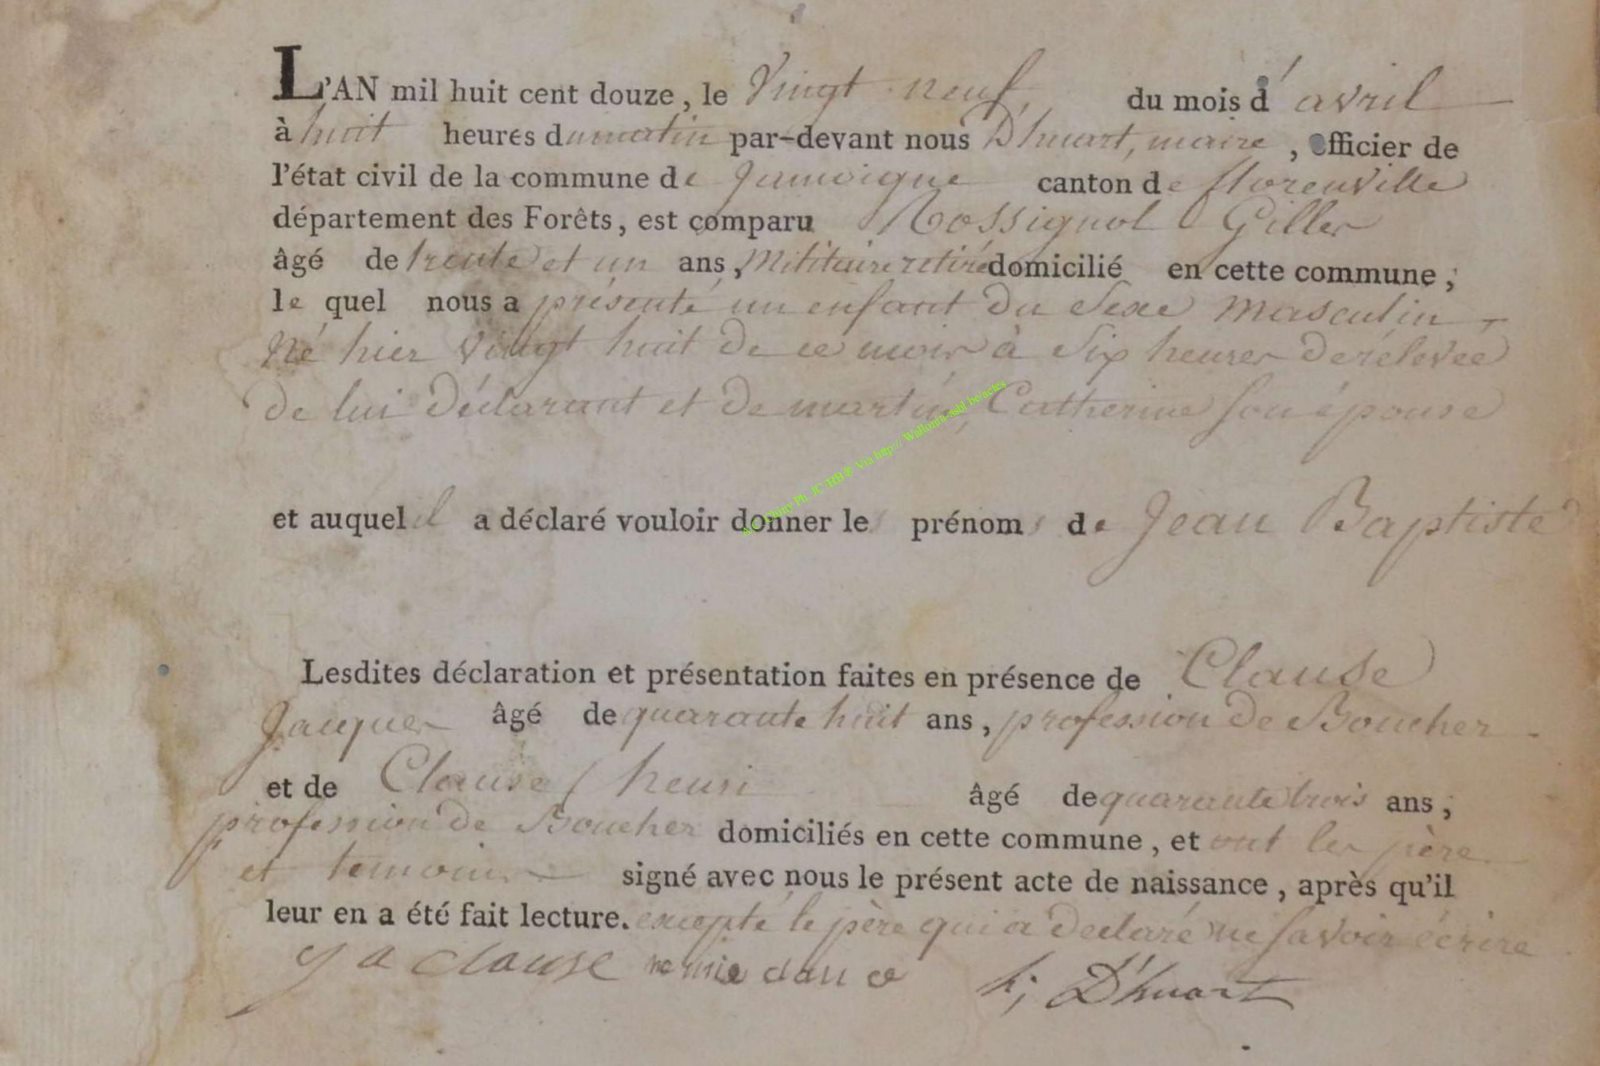 L'AN mil huit cent douze, le Vingt neuf du mois d' avril
à huit heures du matin par-devant nous D'huart, maire, Officier de
l'état civil de la commune de Jamoigne canton de florenville
département des Forêts, est comparu Rossignol Gilles
âgé de trente et un ans, Militaire retiré domicilié en cette commune;
le quel nous a présenté un enfant du Sexe masculin
Né hier Vingt huit de ce mois à Six heures de rélevée
de lui déclarant et de martin, Catherine son épouse
et auquel il a déclaré vouloir donner les prénoms de Jean Baptiste
Lesdites déclaration et présentation faites en présence de Clause
Jacques âgé de quarante huit ans, profession de Boucher
et de Clause henri âgé de quarante trois ans,
profession de Boucher domiciliés en cette commune, et ont les père
et temoins signé avec nous le présent acte de naissance, après qu'il
leur en a été fait lecture. excepté le père qui a declaré ne savoir écrire
clause h; D'huart